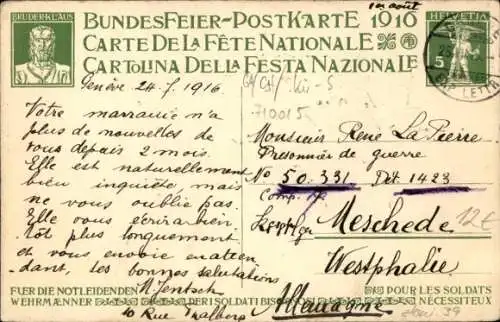 BRUDER·KLAUS
BUNDESFEIER-POSTKARTE 1916
1er août
CARTE DE LA FÊTE NATIONALE
CARTOLINA DELLA FESTA NAZIONALE
HELVETIA
5
Genève 24·7·1916
Votre marraine n'a
plus de nouvelles de
vous depuis 2 mois.
Elle est naturellement
bien inquiète, mais
ne vous oublie pas.
Elle vous écrira bien-
tôt plus longuement
et vous envoie en atten-
dant, les bonnes salutations
M. Jentsch
10 Rue
710015
Monsieur René La Pierre
Prisonnier de guerre
No 50.331 Dét 1423
Comp.
Meschede
12€
Westphalie
Allemagne
FUER DIE NOTLEIDENDEN
WEHRMÄNNER
DEI SOLDATI BISOGNOSI
POUR LES SOLDATS
NÉCESSITEUX